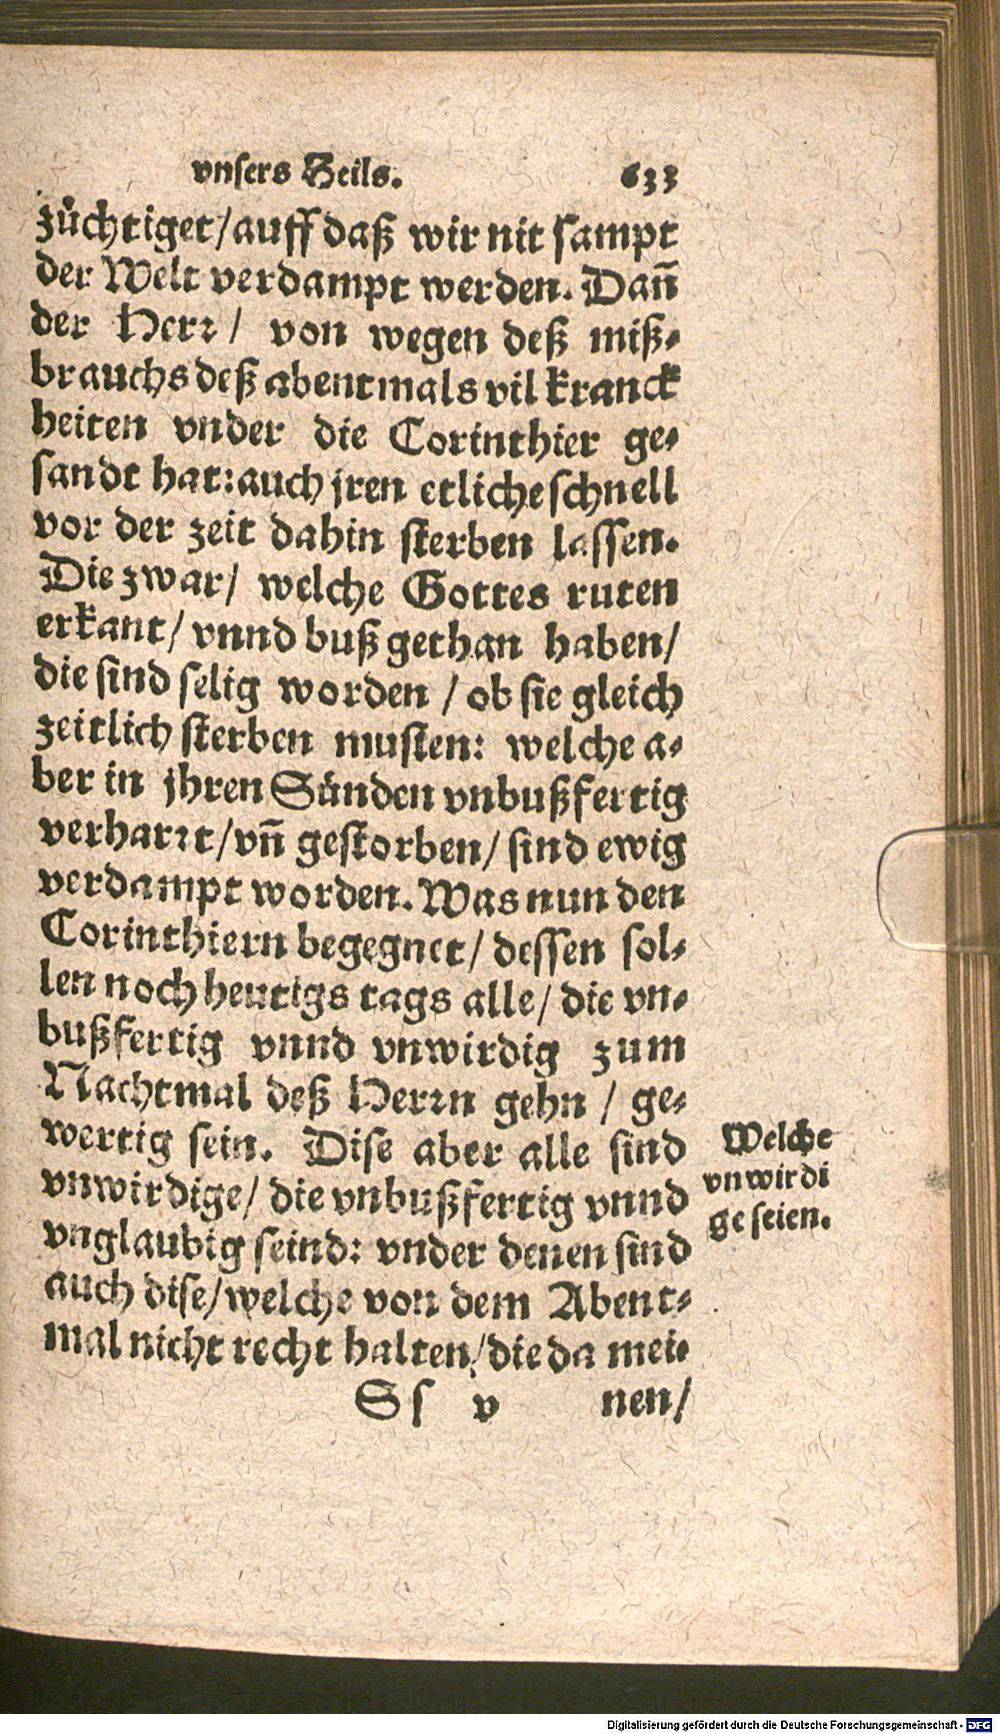 vnsers Heils. 633
zůchtiget/auff daß wir nit sampt
der Welt verdampt werden. Dañ
der Herr/ von wegen deß miß-
brauchs deß abentmals vil kranck
heiten vnder die Corinthier ge-
sandt hat: auch jren etliche schnell
vor der zeit dahin sterben lassen.
Die zwar/ welche Gottes ruten
erkant/ vnnd buß gethan haben/
die sind selig worden / ob sie gleich
zeitlich sterben musten: welche a-
ber in jhren Sünden vnbußfertig
verharrt/vñ gestorben/ sind ewig
verdampt worden. Was nun den
Corinthiern begegnet/ dessen sol-
len noch heutigs tags alle/ die vn-
bußfertig vnnd vnwirdig zum
Nachtmal deß Herrn gehn / ge-
wertig sein. Dise aber alle sind
vnwirdige/ die vnbußfertig vnnd
vnglaubig seind: vnder denen sind
auch dise/welche von dem Abent-
mal nicht recht halten/die da mei-
Ss v nen/
Welche
vnwirdi
ge seien.
Digitalisierung gefördert durch die Deutsche Forschungsgemeinschaft - DFG